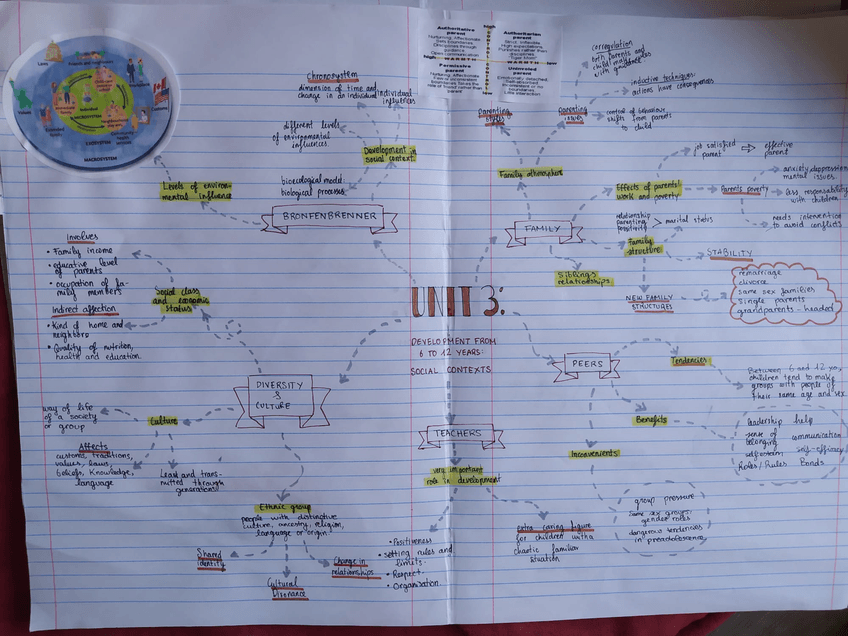 UNIT 3:
DEVELOPMENT FROM
6 TO 12 YEARS:
SOCIAL CONTEXTS
BRONFENBRENNER
Levels of environ-
mental influence
Chronosystem
dimension of time and
change in an individual
individual
influences
different levels
of environmental
influences.
Development in
social context.
bioecological model:
biological processes.
Laws
Customs
MACROSYSTEM
Authoritative
parent
Nurturing, Affectionate
Sets boundaries
Disciplines through
guidance
Open communication
Authoritarian
parent
Strict, Inflexible
High expectations
Punishes rather than
disciplines
Permissive
parent
Uninvolved
parent
FAMILY
Family atmosphere
Parenting
styles
Parenting
issues
coregulation
both parents and
child
inductive techniques:
actions have consequences
control of behaviour
shifts from parents
to child
Effects of parents'
work and poverty
job satisfied
parent
effective
parent
Parents poverty
anxiety, depression
mental issues.
less responsability
with children
needs intervention
to avoid conflicts
relationship
parenting
positivity
marital status
Family
structure
STABILITY
NEW FAMILY
STRUCTURES
remarriage
divorce
same sex families
single parents
grandparents-headed
Siblings
relationships
PEERS
Tendencies
Between 6 and 12 yrs,
children tend to make
groups with people of
their same age and sex
Benefits
leadership
help
sense of
belonging
communication
self-efficacy
Roles/Rules
Bonds
Inconvenients
group pressure
same sex groups,
gender roles
dangerous tendencies
in preadolescence.
TEACHERS
very important
role in development
• Positiveness
• setting rules and
limits.
• Respect.
• Organisation.
extra caring figure
for children with a
chaotic familiar
situation
DIVERSITY
&
CULTURE
Social class
and economic
status
Involves
• Family income
• educative level
of parents
• occupation of fa-
mily members
Indirect affection
• Kind of home and
neighbors
• Quality of nutrition,
health and education.
Culture
way of life
of a society
or group
Affects
customs, traditions,
values, laws,
beliefs, knowledge,
language
Learnt and trans-
mitted through
generations
Ethnic group
people with distinctive
culture, ancestry, religion,
language or origin.
Shared
identity
Cultural
Change in
relationships